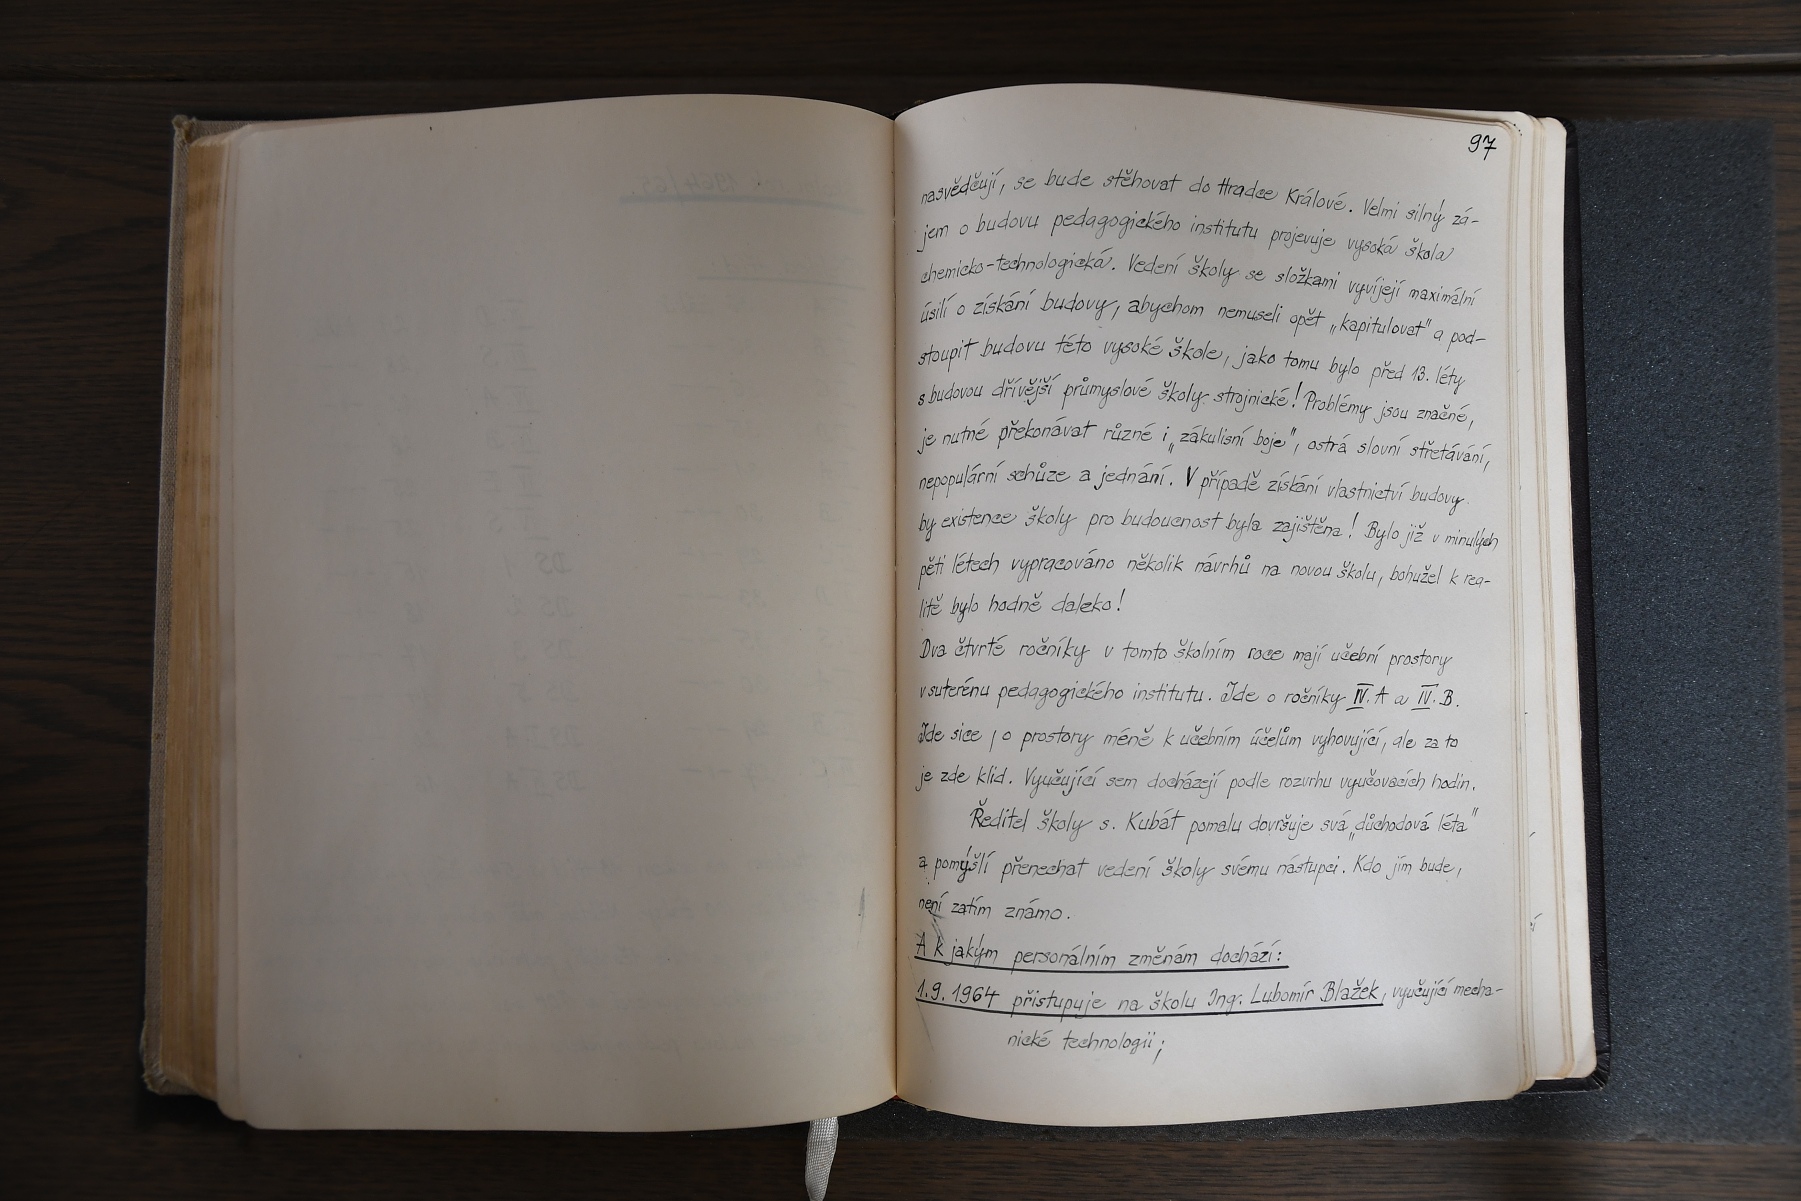 97
nasvědčují, se bude stěhovat do Hradce Králové. Velmi silný zá-
jem o budovu pedagogického institutu projevuje vysoká škola
chemicko-technologická. Vedení školy se složkami vyvíjejí maximální
úsilí o získání budovy, abychom nemuseli opět „kapitulovat" a pod-
stoupit budovu této vysoké škole, jako tomu bylo před 13. léty
s budovou dřívější průmyslové školy strojnické! Problémy jsou značné,
je nutné překonávat různé i „zákulisní boje", ostrá slovní střetávání,
nepopulární schůze a jednání. V případě získání vlastnictví budovy
by existence školy pro budoucnost byla zajištěna! Bylo již v minulých
pěti létech vypracováno několik návrhů na novou školu, bohužel k rea-
litě bylo hodně daleko!
Dva čtvrté ročníky v tomto školním roce mají učební prostory
v suterénu pedagogického institutu. Jde o ročníky IV. A a IV. B.
Jde sice, o prostory méně k učebním účelům vyhovující, ale za to
je zde klid. Vyučující sem docházejí podle rozvrhu vyučovacích hodin.
Ředitel školy s. Kubát pomalu dovršuje svá „důchodová léta"
a pomýšlí přenechat vedení školy svému nástupci. Kdo jím bude,
není zatím známo.
A k jakým personálním změnám dochází:
1.9.1964 přistupuje na školu Ing. Lubomír Blažek, vyučující mecha-
nické technologii;